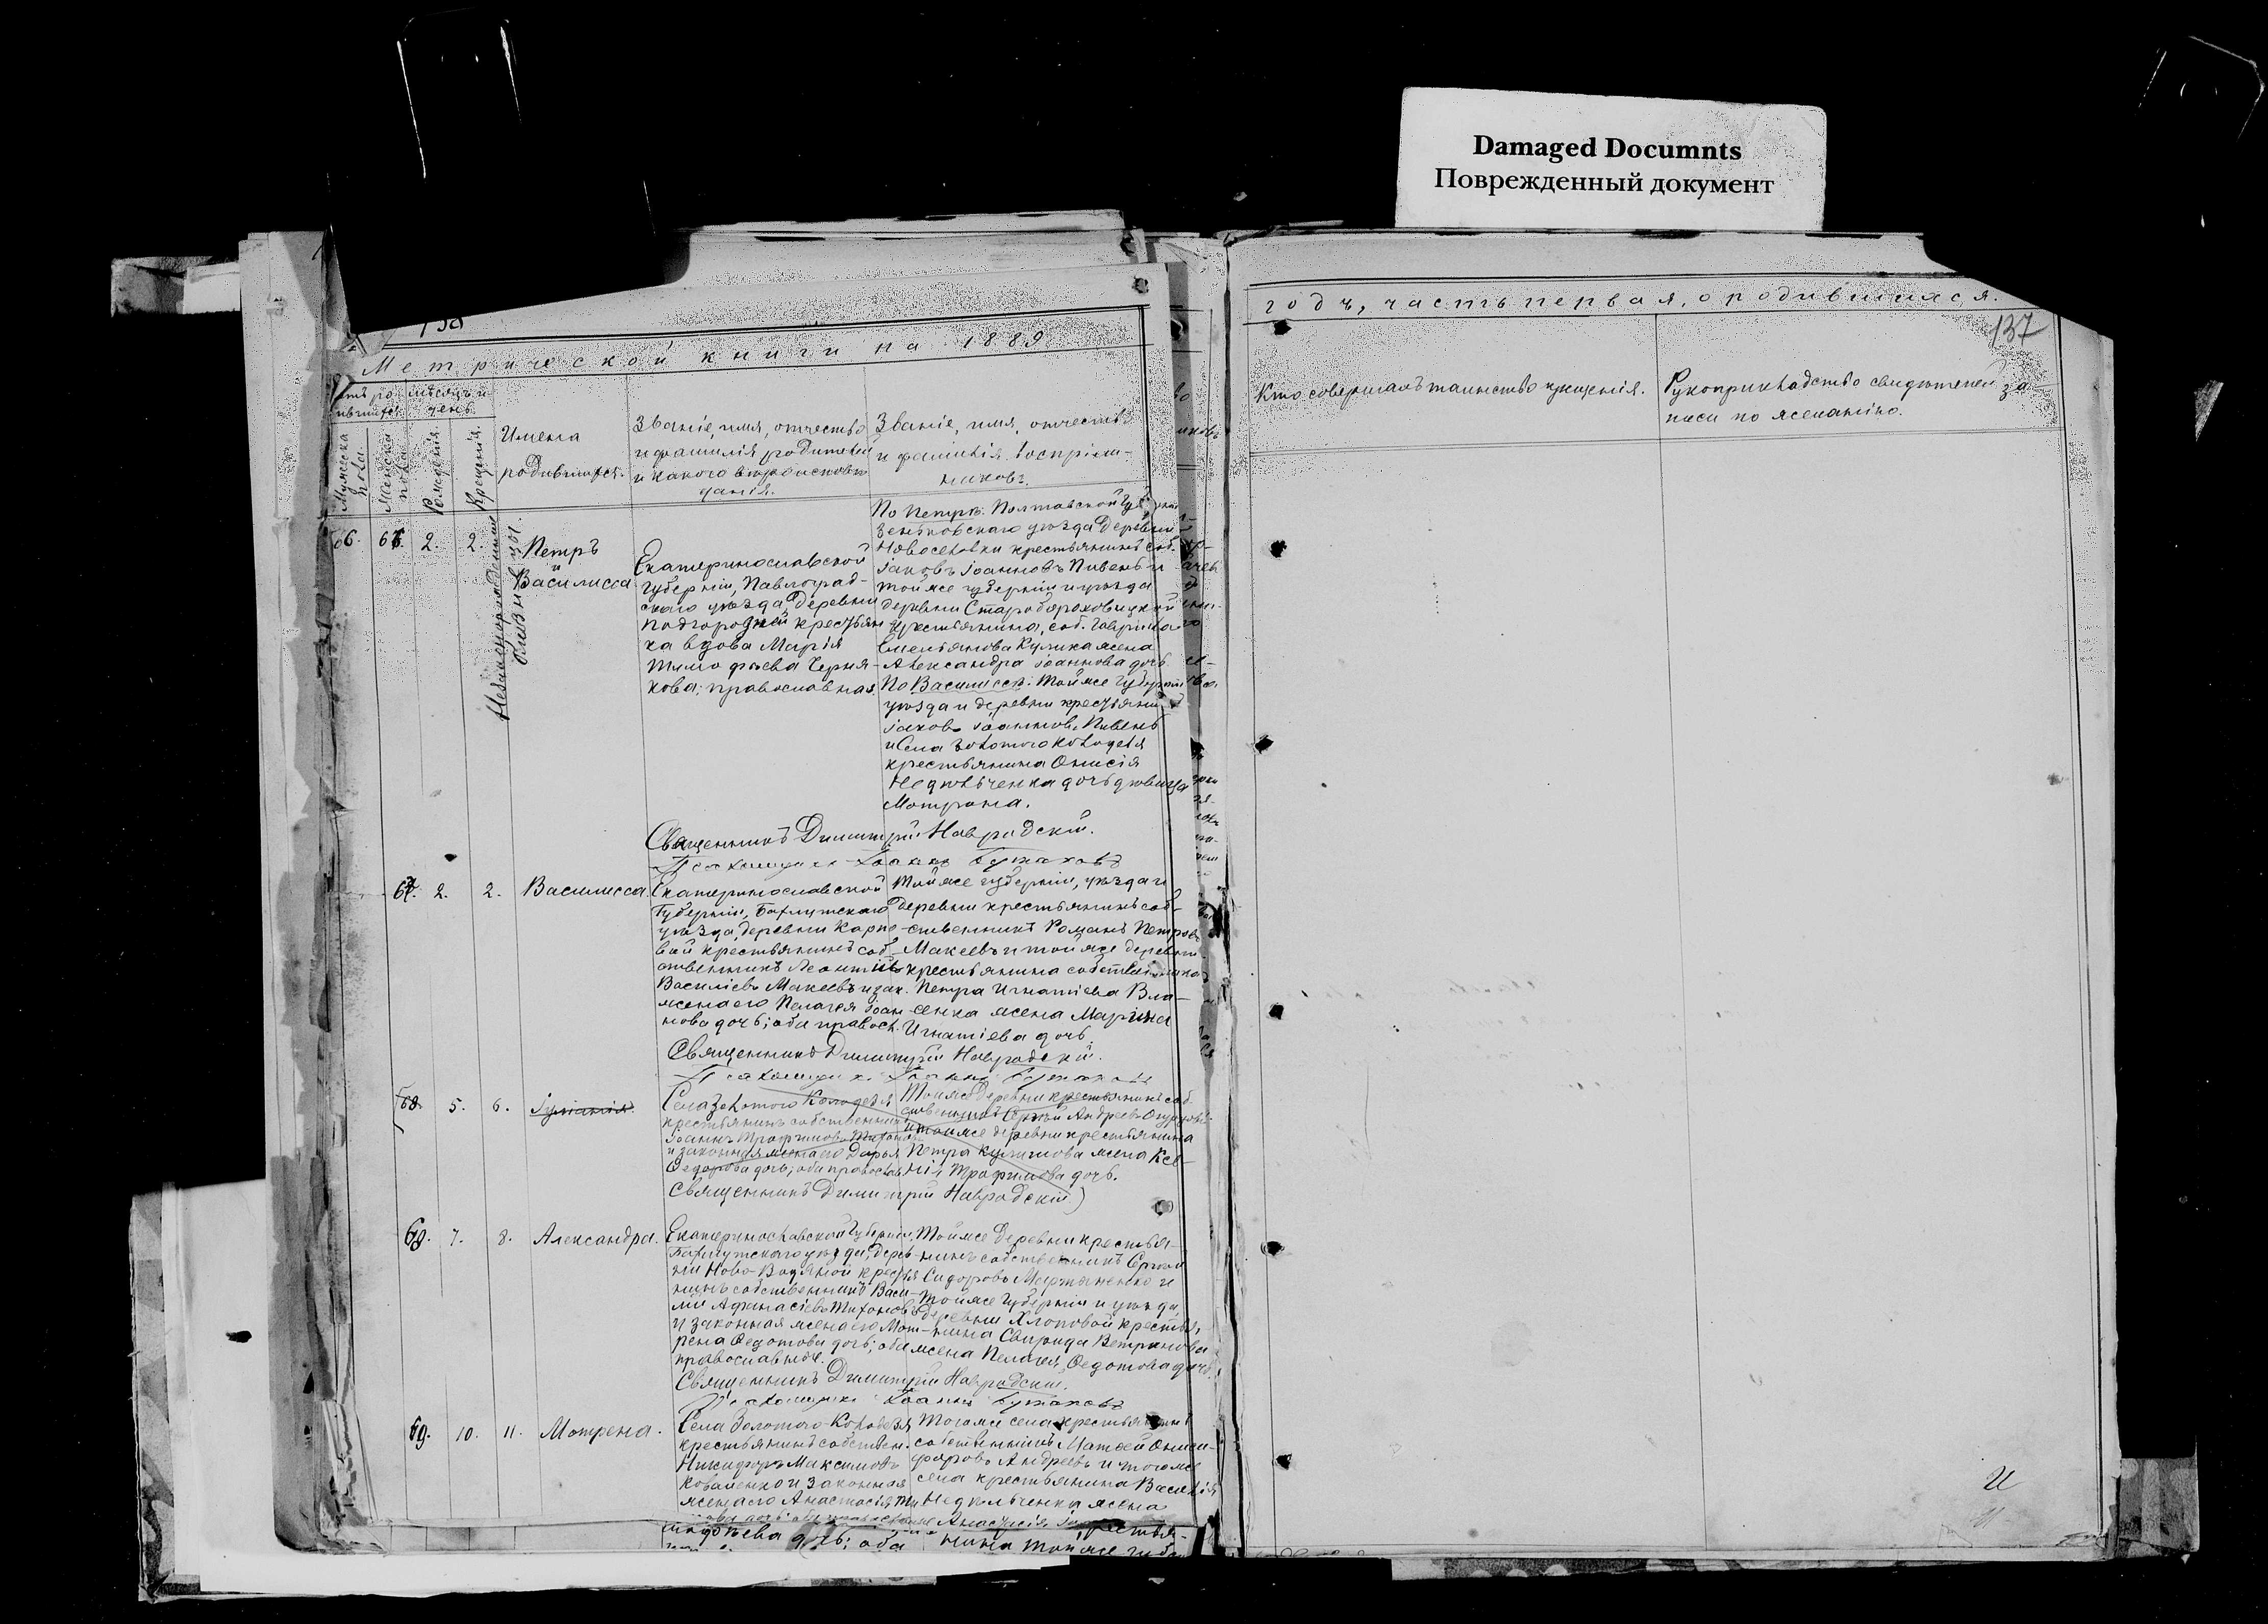 Damaged Documnts
Поврежденный документ
Метрической книги на 1889
годъ, часть первая, о родившихся.
137
мѣсяцъ и
день.
Мужеска
пола.
Женска
пола.
Рожденія.
Крещенія.
Имена
родившихся.
Званіе, имя, отчество
и фамилія родителей
и какого вѣроисповѣ
данія.
Званіе, имя, отчество
и фамилія воспріем-
никовъ.
Кто совершалъ таинство крещенія.
Рукоприкладство свидѣтелей за-
писи по желанію.
66. 66. 2. 2.
Незаконнорожденные
близнецы.
Петръ
и
Василисса
Екатеринославской
губерніи, Павлоград-
скаго уѣзда, деревни
Подгородней крестьян
ка вдова Марія
Тимофѣева Черня-
кова; православная.
По Петрѣ: Полтавской
Зеньковскаго уѣзда деревни
Новоселовки крестьянинъ соб.
Іаковъ Іоанновъ Пивень и
той же губерніи и уѣзда
деревни
крестьянина, соб. Гавріила
Емельянова Кулика жена
Александра Іоаннова дочь
По Василиссѣ: той же губерніи
уѣзда и деревни крестьянин
Іаковъ Іоанновъ Пивень
и села Золотого Колодезя
крестьянина Онисія
Недѣльченка дочь дѣвица
Мотрона.
Священникъ Димитрій Навродскій.
Псаломщикъ Іоаннъ Бутаковъ
67. 2. 2. Василисса.
Екатеринославской
Губерніи, Бахмутскаго
уѣзда, деревни Карпо
вой крестьянинъ соб-
ственникъ Леонтій
Василіевъ Макеевъ и зак.
жена его Пелагея Іоан
нова дочь; оба правосл.
Той же губерніи, уѣзда и
деревни крестьянинъ соб-
ственникъ Романъ Петровъ
Макеевъ и той же деревни
крестьянина собственника
Петра Игнатіева Вла-
сенка жена Марина
Игнатіева дочь.
Священникъ Димитрій Навродскій.
Псаломщикъ Іоаннъ Бутаковъ
68. 5. 6.
Села Золотого Колодезя
крестьянинъ собственникъ
Іоаннъ Трофимовъ Тихонов
и законная жена его Дарья
Федорова дочь; оба православ
Той же деревни крестьянинъ соб.
ственникъ Сергѣй Андреевъ
и той же деревни крестьянина
Петра Куликова жена Ксе-
нія Трофимова дочь.
Священникъ Димитрій Навродскій)
69. 7. 8. Александра.
Екатеринославской Губерніи,
Бахмутскаго уѣзда, дерев-
ни Ново-Водяной крестья
нинъ собственникъ Васи-
лій Афанасіевъ Тихоновъ
и законная жена его Мот-
рена Федотова дочь; оба
православные.
Той же деревни крестья-
нинъ собственникъ Сергѣй
Сидоровъ Мартыненко и
той же губерніи и уѣзда,
деревни Хлоповой крестья
нина Свирида Ветринова
жена Пелагея Федотова дочь.
Священникъ Димитрій Навродскій.
Псаломщикъ Іоаннъ Бутаковъ
69. 10. 11. Мотрена.
Села Золотого-Колодезя
крестьянинъ собствен.
Никифоръ Максимовъ
Коваленко и законная
жена его Анастасія
Того же села крестьянинъ
собственникъ Матѳей Ониси-
форовъ Андреевъ и того же
села крестьянина Василія
Недѣльченка жена
Анастасія
дочь; оба
нина той же губ
И